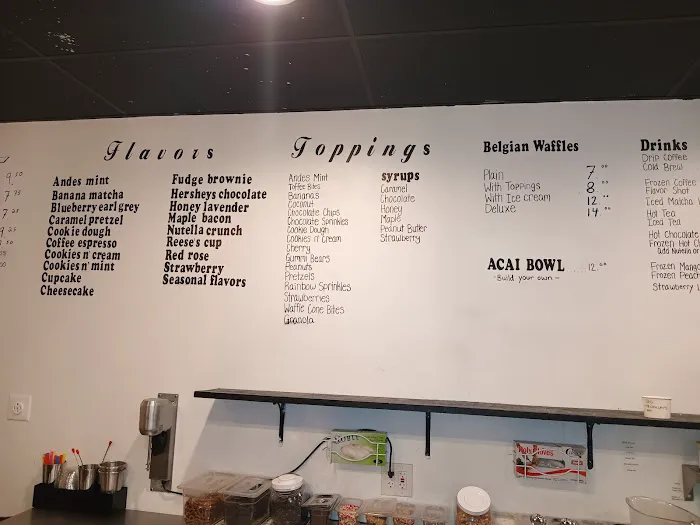 9.50
7.75
7.25
9.25
Flavors
Andes mint
Banana matcha
Blueberry earl grey
Caramel pretzel
Cookie dough
Coffee espresso
Cookies n' cream
Cookies n' mint
Cupcake
Cheesecake
Fudge brownie
Hersheys chocolate
Honey lavender
Maple bacon
Nutella crunch
Reese's cup
Red rose
Strawberry
Seasonal flavors
Toppings
Andes Mint
Toffee Bites
Bananas
Coconut
Chocolate Chips
Chocolate Sprinkles
Cookie Dough
Cookies n' Cream
Cherry
Gummi Bears
Peanuts
Pretzels
Rainbow Sprinkles
Strawberries
Waffle Cone Bites
Granola
syrups
Caramel
Chocolate
Honey
Maple
Peanut Butter
Strawberry
Belgian Waffles
Plain 7.00
With Toppings 8.00
With Ice cream 12.00
Deluxe 14.00
ACAI BOWL .... 12.00
- Build your own -
Drinks
Drip Coffee
Cold Brew
Frozen Coffee
Flavor Shot
Iced Matcha
Hot Tea
Iced Tea
Hot Chocolate
Frozen Hot
add Nutella or
Frozen Mang
Frozen Peach
Strawberry L
Gloves